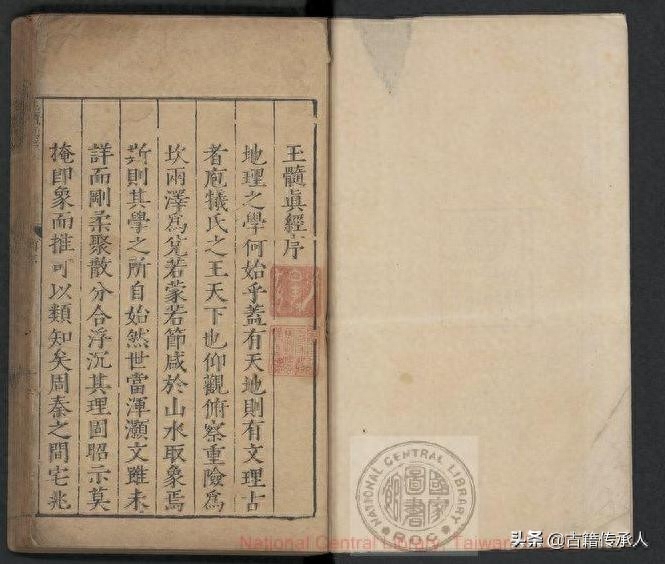 玉髓眞經序
地理之學何始乎蓋有天地則有文理古
者庖犧氏之王天下也仰觀俯察重險爲
坎兩澤爲兌若蒙若節咸於山水取象焉
斯則其學之所自始然世當渾灝文雖未
詳而剛柔聚散分合浮沉其理固昭示莫
掩卽象而推可以類知矣周秦之間宅兆
NATIONAL CENTRAL LIBRARY
國家圖書館
National Central Library, Taiwan
头条 @古籍传承人